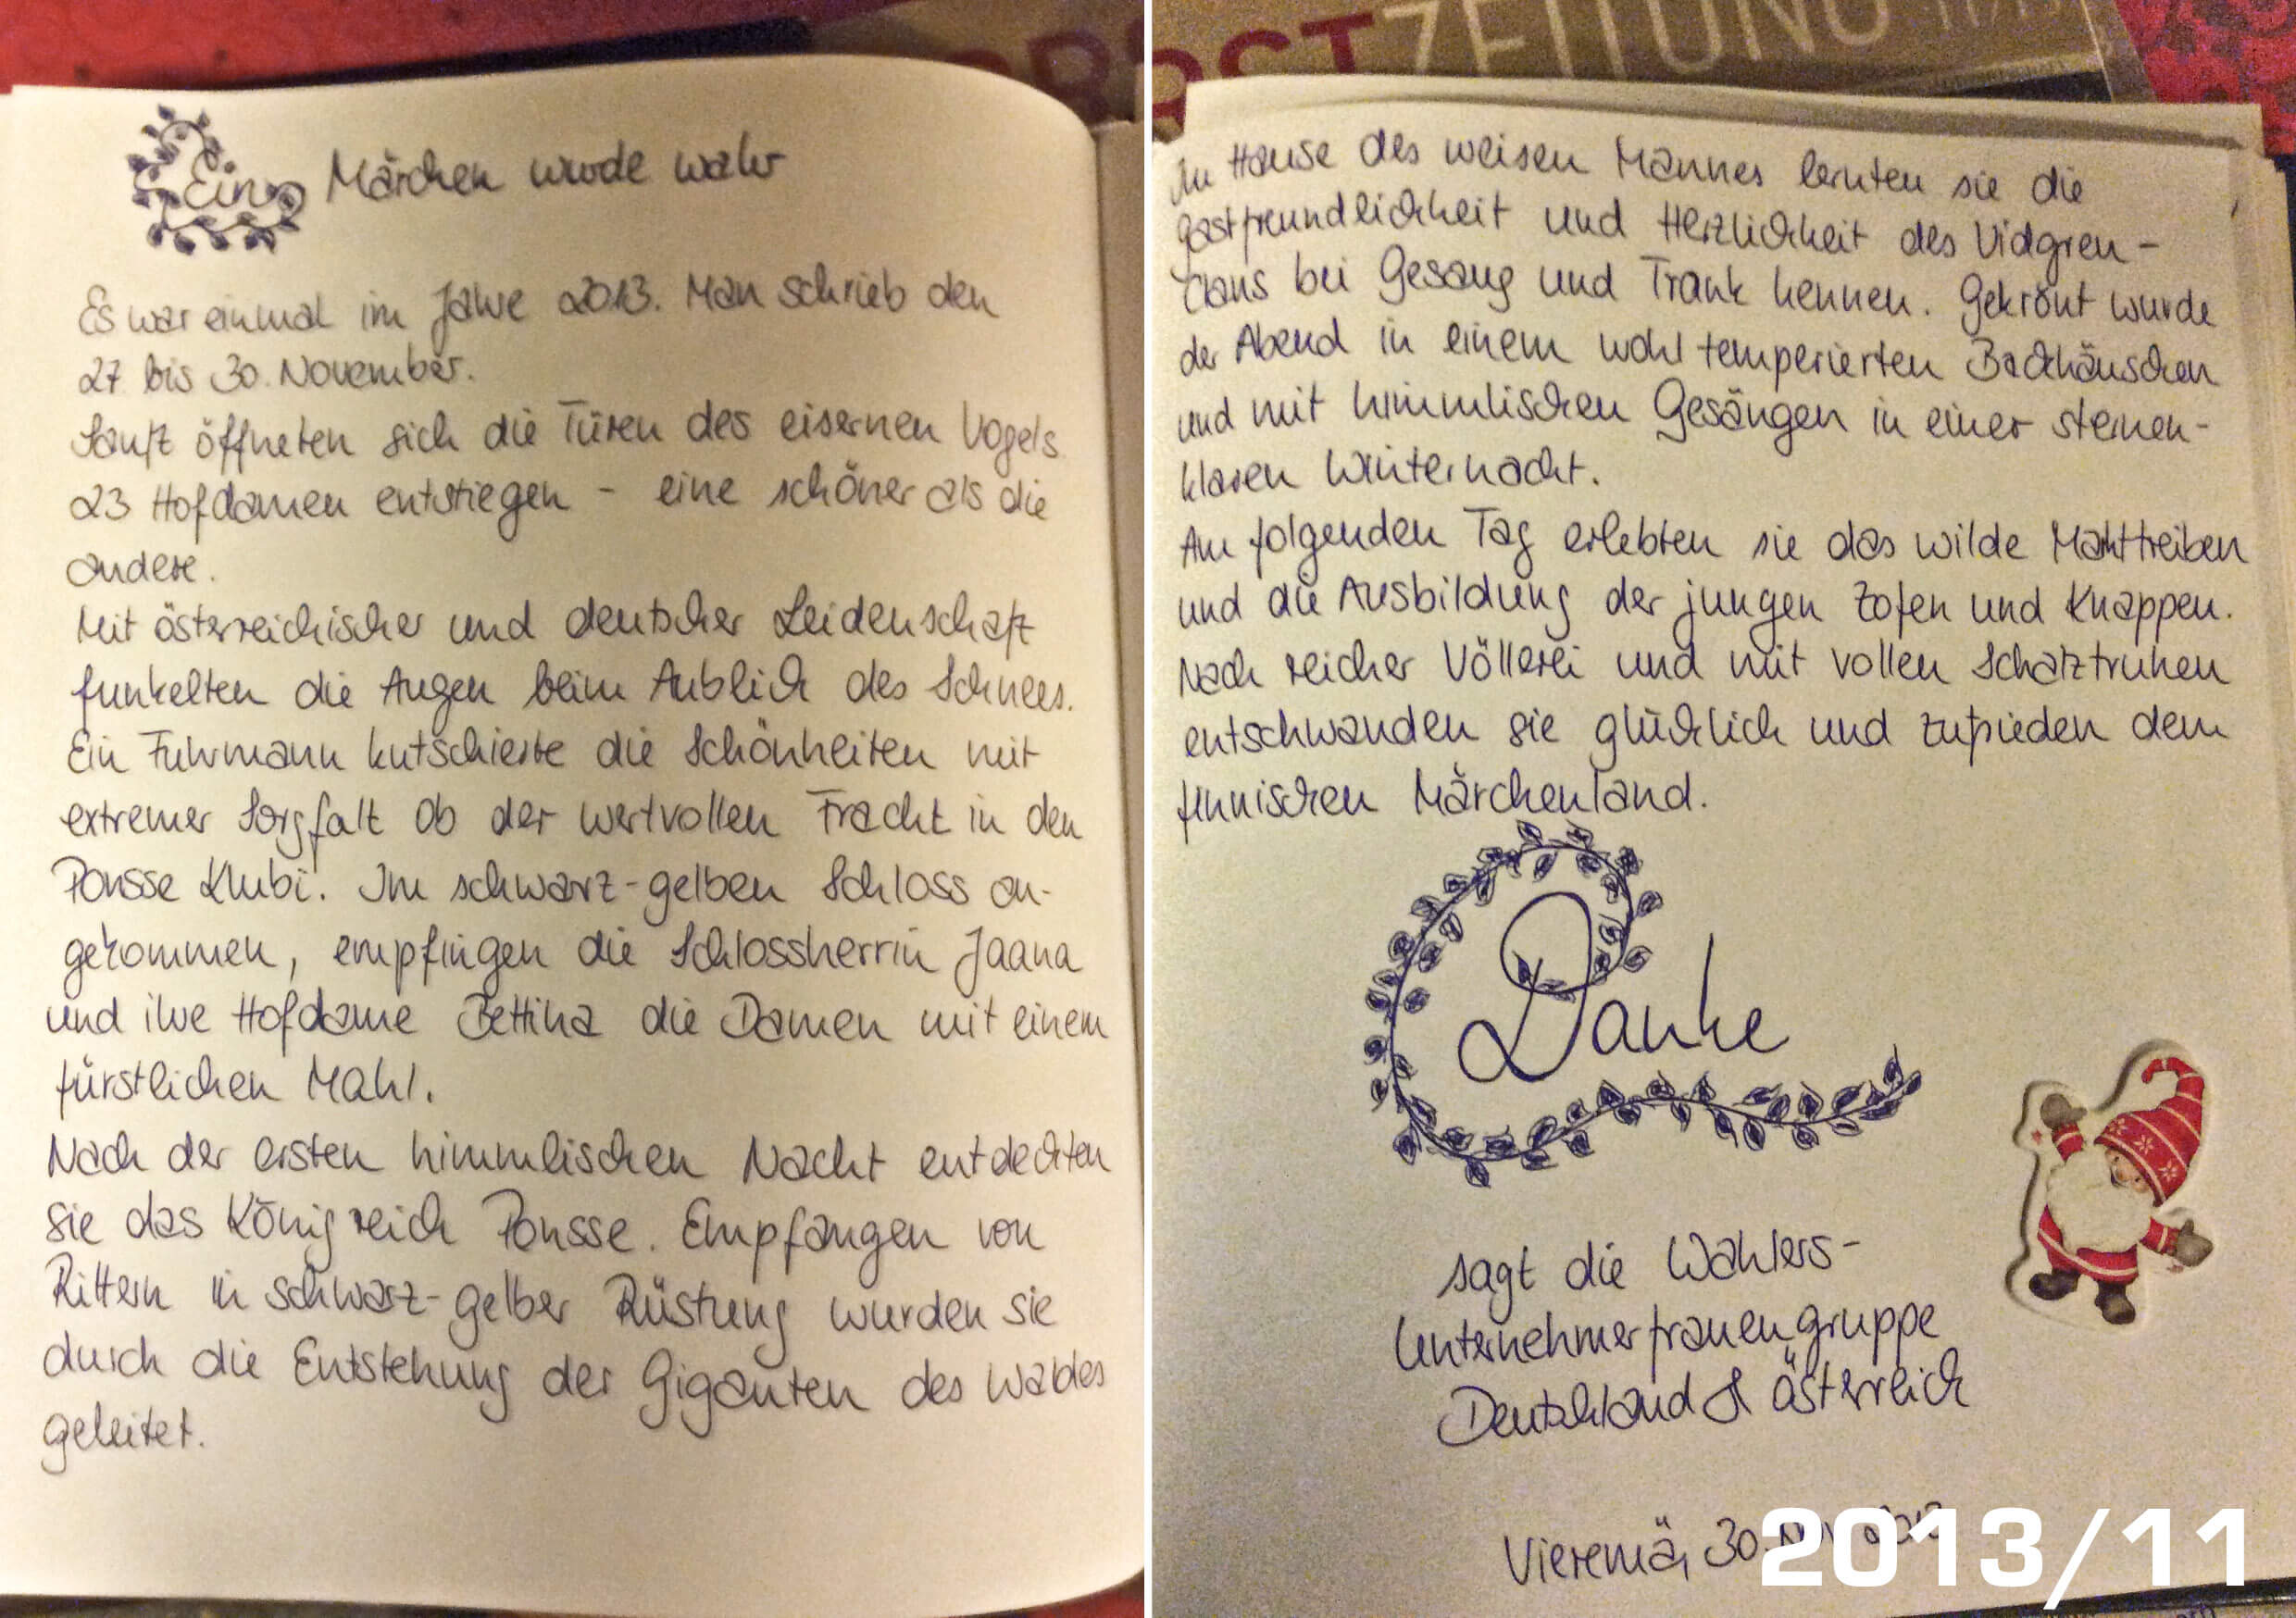 OSTZEITUNG
Ein Märchen wurde wahr
Es war einmal im Jahre 2013. Man schrieb den
27 bis 30. November.
Sanft öffneten sich die Türen des eisernen Vogels
23 Hofdamen entstiegen - eine schöner als die
andere.
Mit österreichischer und deutscher Leidenschaft
funkelten die Augen beim Anblick des Schnees.
Ein Fuhrmann kutschierte die Schönheiten mit
extremer Sorgfalt ob der wertvollen Fracht in den
Ponsse Klubi. Im schwarz-gelben Schloss an-
gekommen, empfingen die Schlossherrin Jaana
und ihre Hofdame Bettina die Damen mit einem
fürstlichen Mahl.
Nach der ersten himmlischen Nacht entdeckten
sie das Königreich Ponsse. Empfangen von
Rittern in schwarz-gelber Rüstung wurden sie
durch die Entstehung der Giganten des Waldes
geleitet.
Im Hause des weisen Mannes lernten sie die
Gastfreundlichkeit und Herzlichkeit des Vidgren-
Clans bei Gesang und Trank kennen. Gekrönt wurde
der Abend in einem wohl temperierten Badhäuschen
und mit himmlischen Gesängen in einer sternen-
klaren Winternacht.
Am folgenden Tag erlebten sie das wilde Markttreiben
und die Ausbildung der jungen Zofen und Knappen.
Nach reicher Völlerei und mit vollen Schatztruhen
entschwanden sie glücklich und zufrieden dem
finnischen Märchenland.
Danke
sagt die Wahlers-
Unternehmerfrauengruppe
Deutschland & Österreich
Vieremä, 30. Nov 2013
2013/11